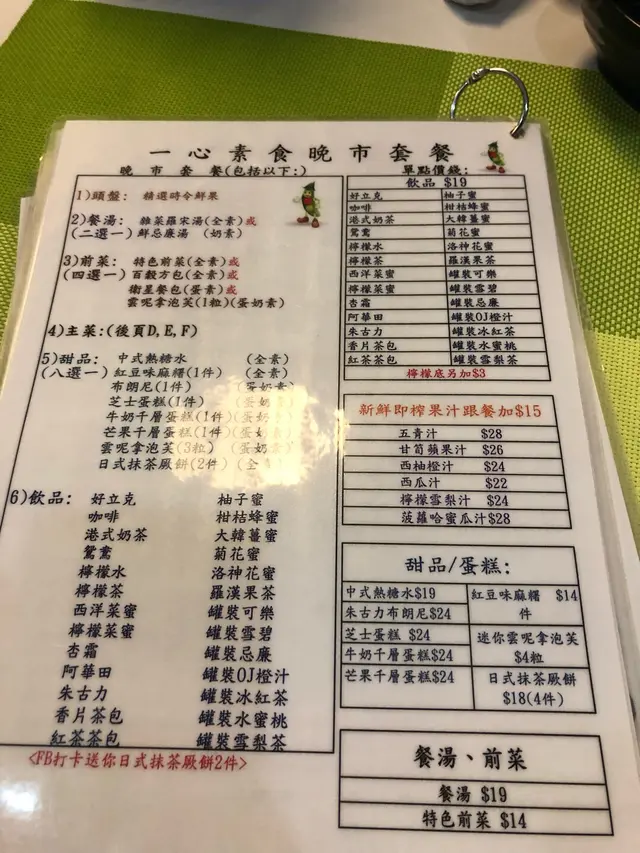 一心素食晚市套餐
晚市套餐(包括以下:)
1)頭盤: 精選時令鮮果
2)餐湯: 雜菜羅宋湯(全素)或
(二選一)鮮忌廉湯 (奶素)
3)前菜: 特色前菜(全素)或
(四選一) 百穀方包(全素)或
衛星餐包(蛋素)或
雲呢拿泡芙(1粒)(蛋奶素)
4)主菜:(後頁D,E,F)
5)甜品: 中式熱糖水 (全素)
(八選一) 紅豆味麻糬(1件) (全素)
布朗尼(1件) (蛋奶素)
芝士蛋糕(1件) (蛋奶素)
牛奶千層蛋糕(1件)(蛋奶素)
芒果千層蛋糕(1件)(蛋奶素)
雲呢拿泡芙(3粒) (蛋奶素)
日式抹茶厥餅(2件) (全素)
6)飲品: 好立克 柚子蜜
咖啡 柑桔蜂蜜
港式奶茶 大韓薑蜜
鴛鴦 菊花蜜
檸檬水 洛神花蜜
檸檬茶 羅漢果茶
西洋菜蜜 罐裝可樂
檸檬菜蜜 罐裝雪碧
杏霜 罐裝忌廉
阿華田 罐裝OJ橙汁
朱古力 罐裝冰紅茶
香片茶包 罐裝水蜜桃
紅茶茶包 罐裝雪梨茶
<FB打卡送你日式抹茶厥餅2件>
單點價錢:
飲品 $19
好立克 柚子蜜
咖啡 柑桔蜂蜜
港式奶茶 大韓薑蜜
鴛鴦 菊花蜜
檸檬水 洛神花蜜
檸檬茶 羅漢果茶
西洋菜蜜 罐裝可樂
檸檬菜蜜 罐裝雪碧
杏霜 罐裝忌廉
阿華田 罐裝OJ橙汁
朱古力 罐裝冰紅茶
香片茶包 罐裝水蜜桃
紅茶茶包 罐裝雪梨茶
檸檬底另加$3
新鮮即榨果汁跟餐加$15
五青汁 $28
甘筍蘋果汁 $26
西柚橙汁 $24
西瓜汁 $22
檸檬雪梨汁 $24
菠蘿哈蜜瓜汁$28
甜品/蛋糕:
中式熱糖水$19 紅豆味麻糬 $14
件
朱古力布朗尼$24
芝士蛋糕 $24 迷你雲呢拿泡芙
$4粒
牛奶千層蛋糕$24
芒果千層蛋糕$24 日式抹茶厥餅
$18(4件)
餐湯、前菜
餐湯 $19
特色前菜 $14